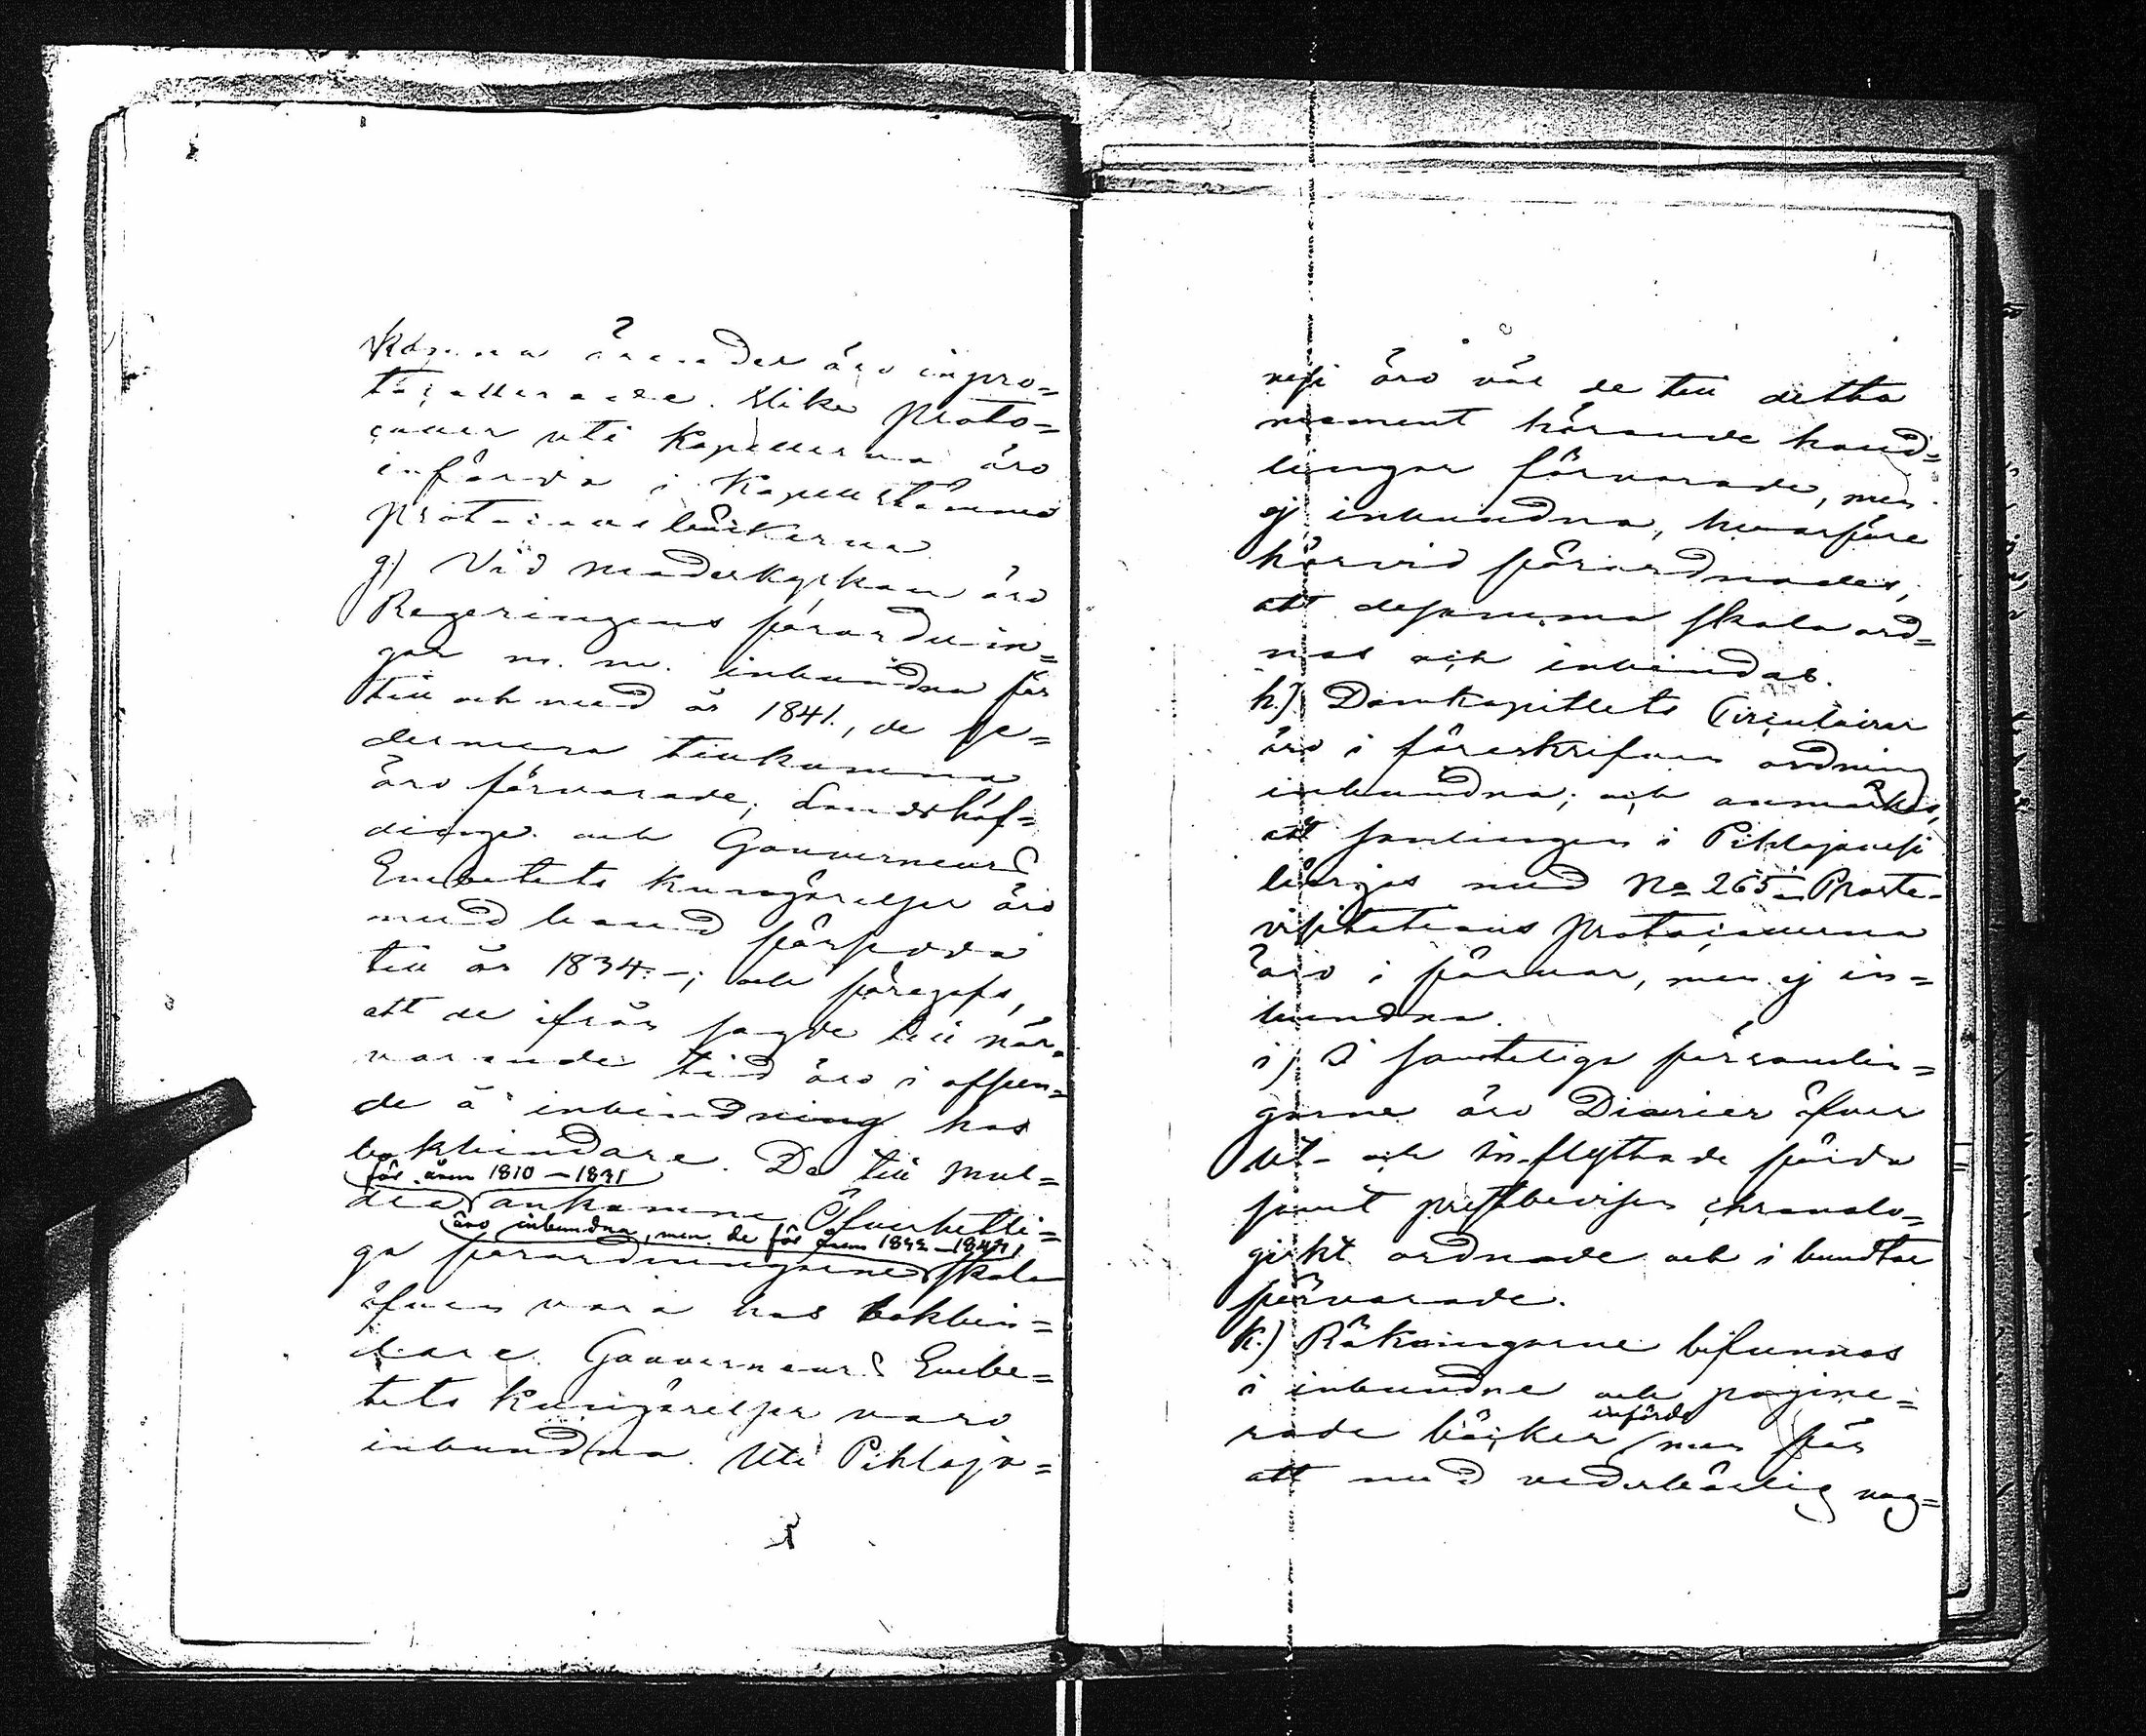 komna ärender äro inpro=
tocollerade. Slika Proto=
coller uti Kapellerna äro
införda i Kapellstämmo
Protocollsböckerna
g) Vid moderkyrkan äro
Regeringens förordnin=
gar m. m. inbundna för
till och med år 1841., de se=
dermera tillkomna
äro förvarade; Landshöf=
dinge och Gouverneurs
Embetets kungörelser äro
med band försedda
till år 1834.-; och föregafs,
att de ifrån sagde till när=
varande tid äro i afseen=
de å inbindning hos
bokbindare. De till Mul=
för åren 1810 – 1841
dia ankomne Öfverhetli=
äro inbundna, men de för åren 1842–1847,
ga förordningarne skola
äfven vara hos bokbin=
dare. Gouverneurs Embe=
tets kungörelser voro
inbundna. Uti Pihlaja=
vesi äro väl de till detta
moment hörande hand=
lingar förvarade, men
ej inbundna, hvarföre
härvid förordnades,
att desamma skola ord=
nas och inbindas.
h.) Domkapitlets Circulairer
äro i föreskrifven ordning
inbundna; och anmärkes,
att samlingen i Pihlajavesi
börjas med No 265. Proste-
visitations Protocollerna
äro i förvar, men ej in=
bundna.
i) I samteliga församlin=
garne äro Diarier öfver
ut- och in-flyttade förda
samt prestbevisen chronolo=
giskt ordnade och i bundtar
förvarade.
k.) Räkningarne befunnos
i inbundne och pagine=
rade böcker införde men för
att med vederbörlig nog=